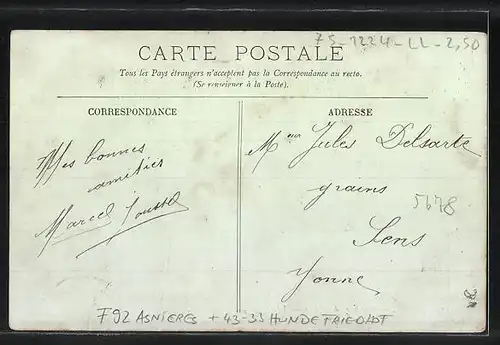 75-1224-LL-2,50
CARTE POSTALE
Tous les Pays étrangers n'acceptent pas la Correspondance au recto.
(Se renseigner à la Poste).
CORRESPONDANCE
Mes bonnes
amitiés
Marcel
ADRESSE
Meur Jules Delsarte
grains
5678
Sens
Yonne
F92 ASNIERES + 43-33 HUNDETRIEDLDT